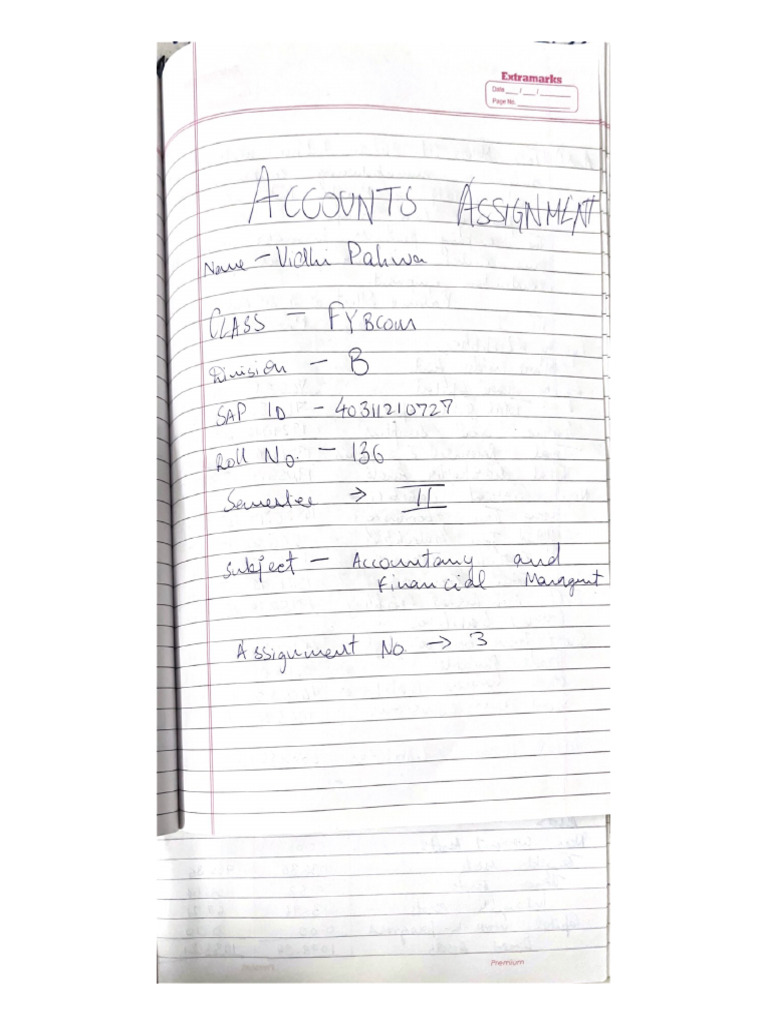 Extramarks
Date ___/___/______
Page No. ______
ACCOUNTS ASSIGNMENT
Name - Vidhi Pahwa
CLASS - FYBcom
Division - B
SAP ID - 40311210727
Roll No. - 136
Semester → II
Subject - Accountany and
Financial Managent
Assignment No → 3
Premium